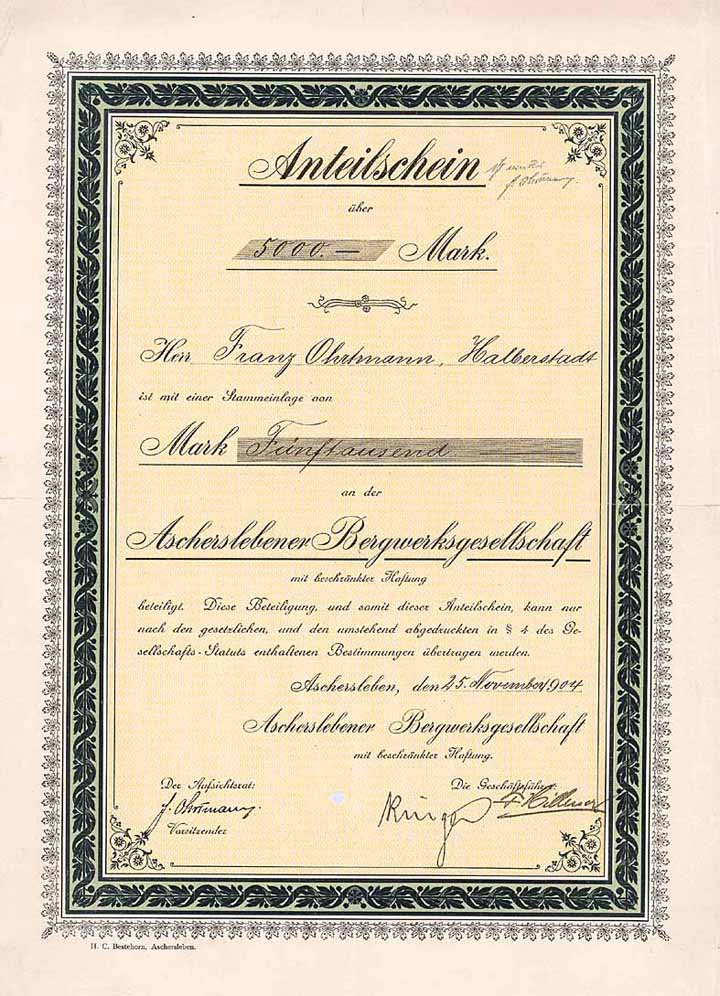 Anteilschein
über
5000.— Mark.
Herr Franz Ohrtmann, Halberstadt
ist mit einer Stammeinlage von
Mark Fünftausend —
an der
Ascherslebener Bergwerksgesellschaft
mit beschränkter Haftung
beteiligt. Diese Beteiligung, und somit dieser Anteilschein, kann nur
nach den gesetzlichen, und den umstehend abgedruckten in § 4 des Ge-
sellschafts-Statuts enthaltenen Bestimmungen übertragen werden.
Aschersleben, den 25. November 1904
Ascherslebener Bergwerksgesellschaft
mit beschränkter Haftung.
Der Aufsichtsrat:
Die Geschäftsführer:
f. Ohrtmann.
Vorsitzender
H. C. Bestehorn, Aschersleben.